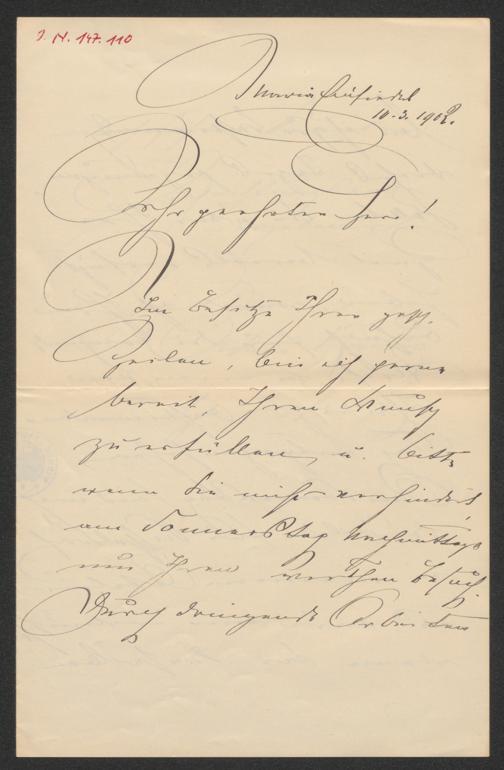 J. N. 147.110
Maria Einsiedel
10.3.1902.
Sehr geehrter Herr!
Im Besitze Ihrer gesch.
Zeilen, bin ich gerne
bereit, Ihren Wunsch
zu erfüllen, u. bitte
wenn Sie nicht verhindert,
am Donnerstag Nachmittags
um Ihren werthen Besuch.
Durch dringende Arbeiten